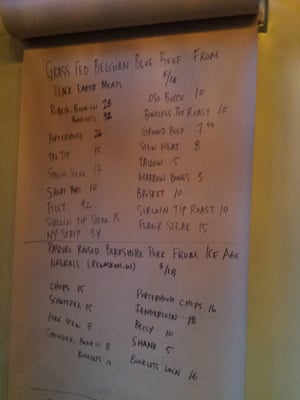 GRASS FED BELGIAN BLUE BEEF FROM
BLACK EARTH MEATS
$/LB
RIBEYE, BONE-IN 28
BONELESS 32
PORTERHOUSE 26
TRI TIP 15
SIRLOIN STEAK 17
SHORT RIBS 10
FILET 42
SIRLOIN TIP STEAK 15
NY STRIP 34
OSO BUCCO 10
BONELESS POT ROAST 10
GROUND BEEF 7.
STEW MEAT 8
TALLOW 5
MARROW BONES 3
BRISKET 10
SIRLOIN TIP ROAST 10
FLANK STEAK 15
PASTURE RAISED BERKSHIRE PORK FROM ICE AGE
NATURALS (KEWASKUM, WI) $/LB
CHOPS 15
SCHNITZEL 15
PORK STEW 8
SHOULDER, BONE-IN 8
BONELESS
PORTERHOUSE CHOPS 16
TENDERLOIN 18
BELLY 10
SHANK 5
BONELESS LOIN 16